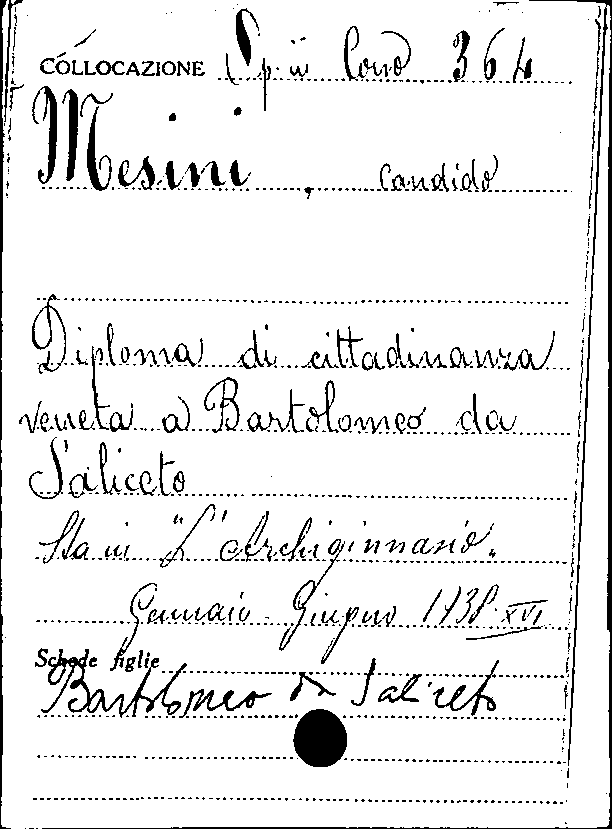 COLLOCAZIONE Sp. in Cons. 364
Mesini, Candido
Diploma di cittadinanza
veneta a Bartolomeo da
Saliceto
Sta in "L'Archiginnasio"
Gennaio-Giugno 1938-XVI
Schede figlie
Bartolomeo da Saliceto